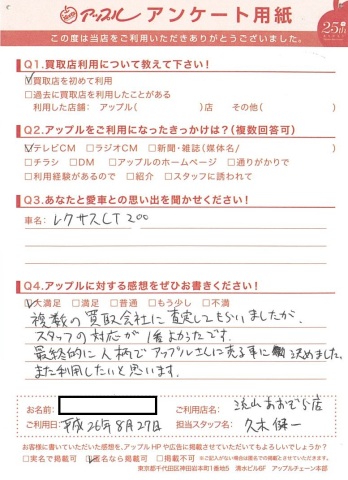 アップル アンケート用紙
25th
この度は当店をご利用いただきありがとうございました。
Q1.買取店利用について教えて下さい!
☑買取店を初めて利用
□過去に買取店を利用したことがある
利用した店舗: アップル( )店 その他( )
Q2.アップルをご利用になったきっかけは?(複数回答可)
☑テレビCM □ラジオCM □新聞・雑誌(媒体名/ )
□チラシ □DM □アップルのホームページ □通りがかりで
□利用経験があるので □紹介 □スタッフに誘われて
Q3.あなたと愛車との思い出を聞かせください!
車名: レクサスCT200
Q4.アップルに対する感想をぜひお書きください!
☑大満足 □満足 □普通 □もう少し □不満
複数の買取会社に査定してもらいましたが、
スタッフの対応が1番よかったです。
最終的に人柄でアップルさんに売る事に決めました。
また利用したいと思います。
お名前:
ご利用店名: 流山おおぞら店
ご利用日: 平成26年8月27日
担当スタッフ名: 久木 健一
お客様に書いていただいた感想を、アップルHPや広告に掲載させていただいてもよろしいでしょうか?
□実名で掲載可 ☑匿名なら掲載可 □掲載不可 ※ご記入がない場合は匿名での掲載とさせていただきます。
東京都千代田区神田岩本町1番地5 清水ビル6F アップルチェーン本部